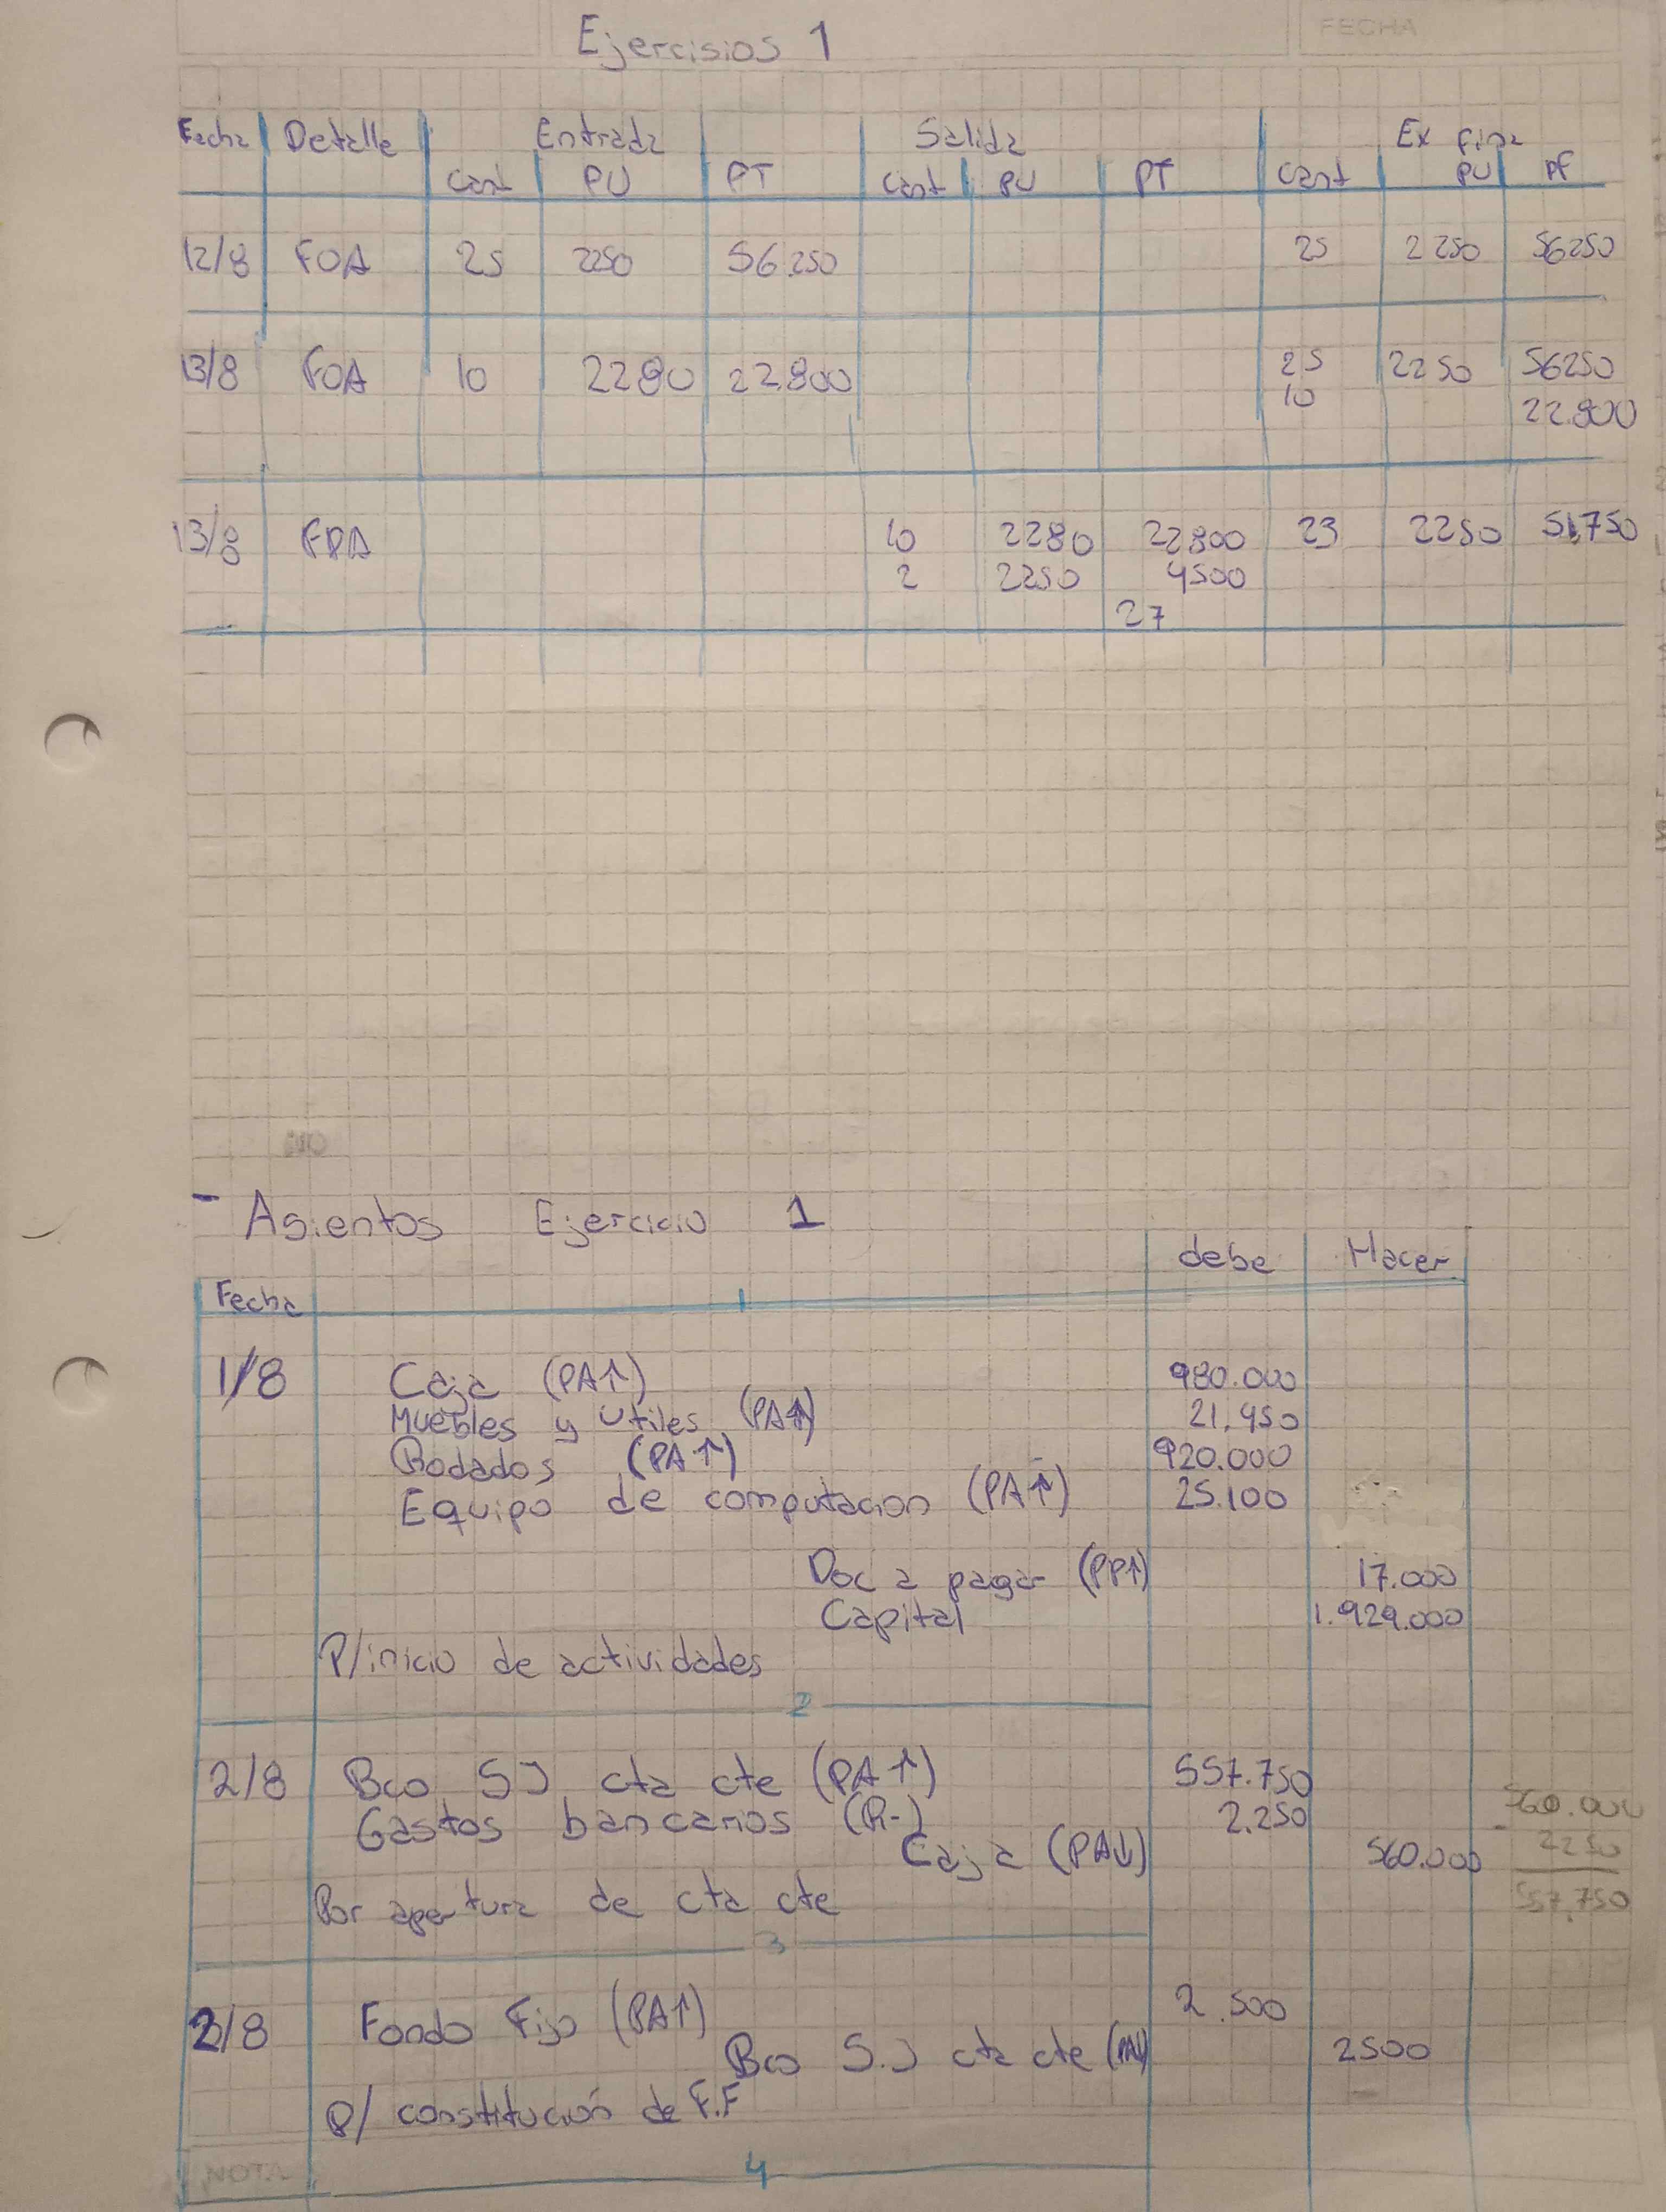 FECHA
Ejercisios 1
Fecha Detalle Entrada Salida Ex fina
cant PU PT cant PU PT cant PU PF
12/8 FOA 25 2250 56.250 25 2250 56250
13/8 FOA 10 2280 22.800 25 2250 56250
10 22.800
13/8 FDA 10 2280 22800 23 2250 51,750
2 2250 4500
27
NO
- Asientos Ejercicio 1
debe Hacer
Fecha 1
1/8 Caja (PA↑) 980.000
Muebles y utiles (PA↑) 21.450
Rodados (PA↑) 920.000
Equipo de computacion (PA↑) 25.100
Doc a pagar (PP↑) 17.000
Capital 1.929.000
P/inicio de actividades
2
2/8 Bco SJ cta cte (PA↑) 557.750
Gastos bancarios (R-) 2.250
Caja (PA↓) 560.000
Por apertura de cta cte
560.000
- 2250
557.750
3
2/8 Fondo Fijo (PA↑) 2.500
Bco S.J cta cte (PA↓) 2500
P/ constitución de F.F
NOTA
4